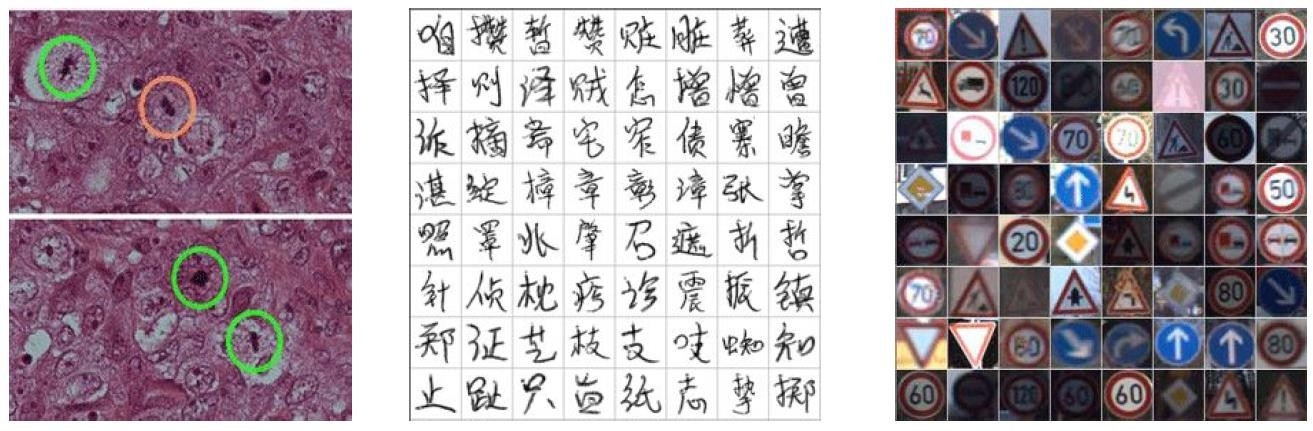 咱 攒 暂 赞 赃 脏 葬 遭
择 则 泽 贼 怎 增 憎 曾
诈 摘 斋 宅 窄 债 寨 瞻
湛 绽 樟 章 彰 漳 张 掌
照 罩 兆 肇 召 遮 折 哲
针 侦 枕 疹 诊 震 振 镇
郑 证 芝 枝 支 吱 蜘 知
止 趾 只 旨 纸 志 挚 掷
70 70 30
120 60 30
70 70 60
30 50
20
70 80
80
60 120 60 60